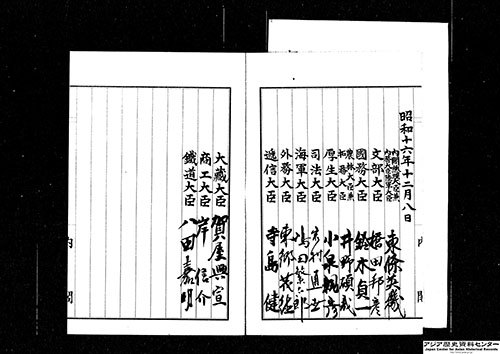 昭和十六年十二月八日
内閣總理大臣兼
内務大臣陸軍大臣 東條英機
文部大臣 橋田邦彦
國務大臣 鈴木貞一
農林大臣兼
拓務大臣 井野碩哉
厚生大臣 小泉親彦
司法大臣 岩村通世
海軍大臣 嶋田繁太郎
外務大臣 東郷茂德
遞信大臣 寺島健
大藏大臣 賀屋興宣
商工大臣 岸信介
鐵道大臣 八田嘉明
内閣
内閣
アジア歴史資料センター
Japan Center for Asian Historical Records